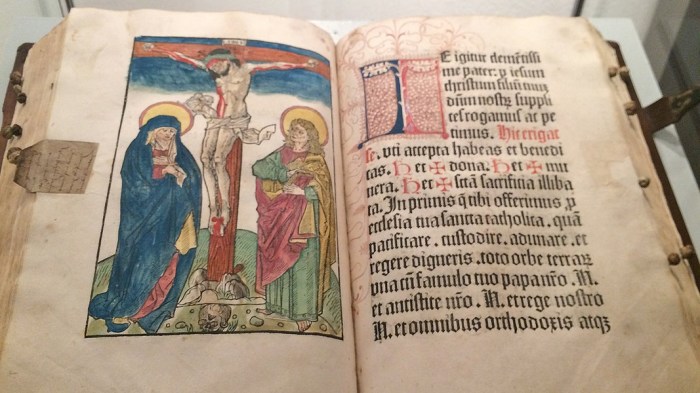 INRI
TE igitur clemētissi
me pater. ꝑ iesum
christum filiū tuū
dūm nostꝝ suppli
ces rogamus ac pe
timus. Hic erigat
se. vti accepta habeas et benedi
cas. Hec ✠ dona. Hec ✠ mu
nera. Hec ✠ sctā sacrificia illiba
ta. In primis q̄ tibi offerimus ꝓ
ecclesia tua sancta catholica. quā
pacificare. custodire. adunare. et
regere digneris. toto orbe terraꝝ
vna cū famulo tuo papa nr̄o. N.
et antistite nr̄o. N. et rege nostro
N. et omnibus orthodoxis atqꝫ